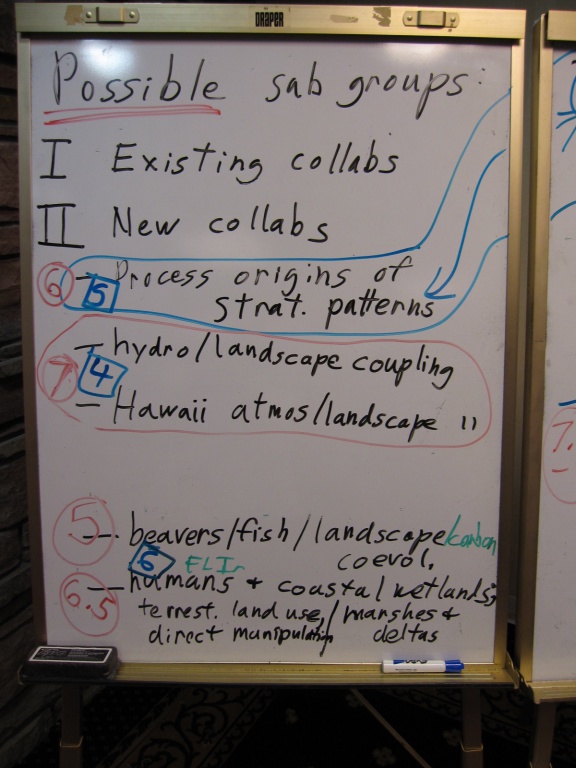 DRAPER
Possible sab groups:
I Existing collabs
II New collabs
6 5 — Process origins of
strat. patterns
7 4 — hydro/landscape coupling
— Hawaii atmos/landscape "
5 — beavers/fish/landscape/carbon
6 coevol.
6.5 — humans + coastal wetlands;
terrest. land use, / marshes +
direct manipulation deltas
7.